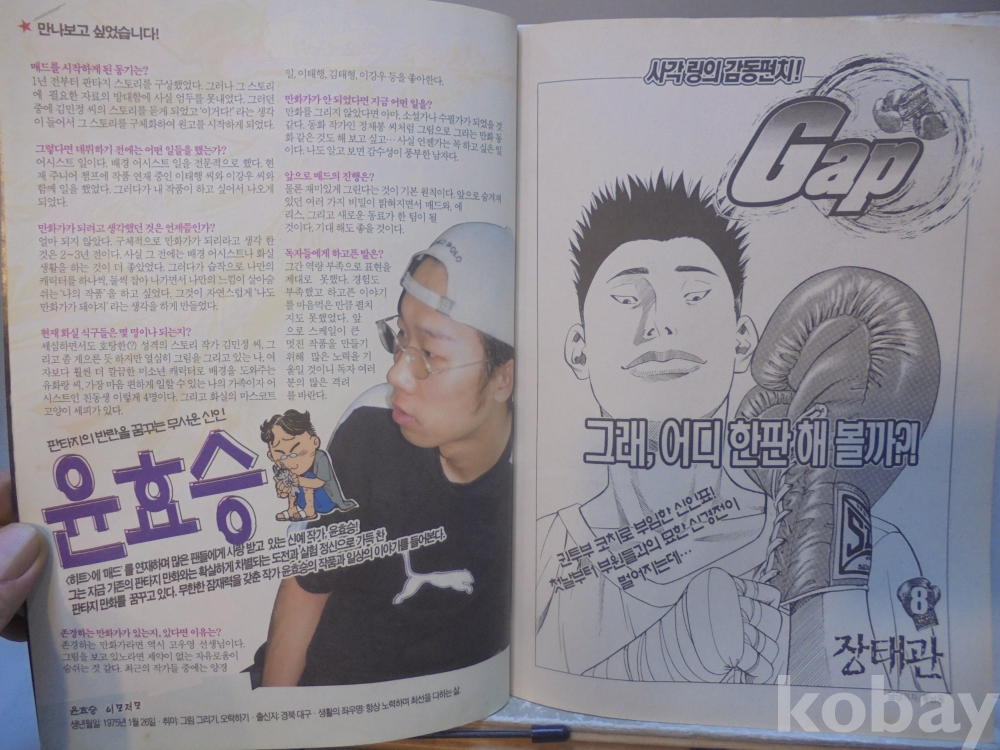 만나보고 싶었습니다!
매드를 시작하게 된 동기는?
1년 전부터 판타지 스토리를 구상했었다. 그러나 그 스토리
에 필요한 자료의 방대함에 사실 엄두를 못내었다. 그러던
중에 김민정 씨의 스토리를 듣게 되었고 '이거다!' 라는 생각
이 들어서 그 스토리를 구체화하여 원고를 시작하게 되었다.
그렇다면 데뷔하기 전에는 어떤 일들을 했는가?
어시스트 일이다. 배경 어시스트 일을 전문적으로 했다. 현
재 주니어 챔프에 작품 연재 중인 이태행 씨와 이강우 씨와
함께 일을 했었다. 그러다가 내 작품이 하고 싶어서 나오게
되었다.
만화가가 되려고 생각했던 것은 언제쯤인가?
얼마 되지 않았다. 구체적으로 만화가가 되리라고 생각 한
것은 2~3년 전이다. 사실 그 전에는 배경 어시스트나 화실
생활을 하는 것이 더 좋았었다. 그러다가 습작으로 나만의
캐릭터를 하나씩, 둘씩 잡아 나가면서 나만의 느낌이 살아숨
쉬는 '나의 작품'을 하고 싶었다. 그것이 자연스럽게 '나도
만화가가 돼야지' 라는 생각을 하게 만들었다.
현재 화실 식구들은 몇 명이나 되는지?
세심하면서도 호탕한(?) 성격의 스토리 작가 김민정 씨, 그
리고 좀 게으른 듯 하지만 열심히 그림을 그리고 있는 나, 여
자보다 훨씬 더 깔끔한 미소년 캐릭터로 배경을 도와주는
유화랑 씨, 가장 마음 편하게 일할 수 있는 나의 가족이자 어
시스트인 친동생 이렇게 4명이다. 그리고 화실의 마스코트
고양이 세피가 있다.
판타지의 반란을 꿈꾸는 무서운 신인
윤효승
<히트>에 '매드' 를 연재하며 많은 팬들에게 사랑 받고 있는 신예 작가, 윤효승!
그는 지금 기존의 판타지 만화와는 확실하게 차별되는 도전과 실험 정신으로 가득 찬
판타지 만화를 꿈꾸고 있다. 무한한 잠재력을 갖춘 작가 윤효승의 작품과 일상의 이야기를 들어본다.
존경하는 만화가가 있는지, 있다면 이유는?
존경하는 만화가라면 역시 고우영 선생님이다.
그림을 보고 있노라면 제약이 없는 자유로움이
숨쉬는 것 같다. 최근의 작가들 중에는 양경
일, 이태행, 김태형, 이강우 등을 좋아한다.
만화가가 안 되었다면 지금 어떤 일을?
만화를 그리지 않았다면 아마, 소설가나 수필가가 되었을 것
같다. 동화 작가인 정채봉 씨처럼 그림으로 그리는 만화 동
화 같은 것도 해 보고 싶고… 사실 언젠가는 꼭 하고 싶은 일
이다. 나도 알고 보면 감수성이 풍부한 남자다.
앞으로 매드의 진행은?
물론 재미있게 그린다는 것이 기본 원칙이다. 앞으로 숨겨져
있던 여러 가지 비밀이 밝혀지면서 매드와, 에
리스, 그리고 새로운 동료가 한 팀이 될
것이다. 기대 해도 좋을 것이다.
독자들에게 하고픈 말은?
그간 역량 부족으로 표현을
제대로 못했다. 경험도
부족했고 하고픈 이야기
를 마음먹은 만큼 펼치
지도 못했었다. 앞
으로 스케일이 큰
멋진 작품을 만들기
위해 많은 노력을 기
울일 것이니 독자 여러
분의 많은 격려
를 바란다.
POLO
윤효승
생년월일 1975년 1월 26일 · 취미: 그림 그리기, 오락하기 · 출신지: 경북 대구 · 생활의 좌우명: 항상 노력하며 최선을 다하는 삶.
사각 링의 감동펀치!
Gap
그래, 어디 한판 해 볼까?!
권투부 코치로 부임한 신인표!
첫날부터 부원들과의 묘한 신경전이
벌어지는데…
8
장태관
kobay